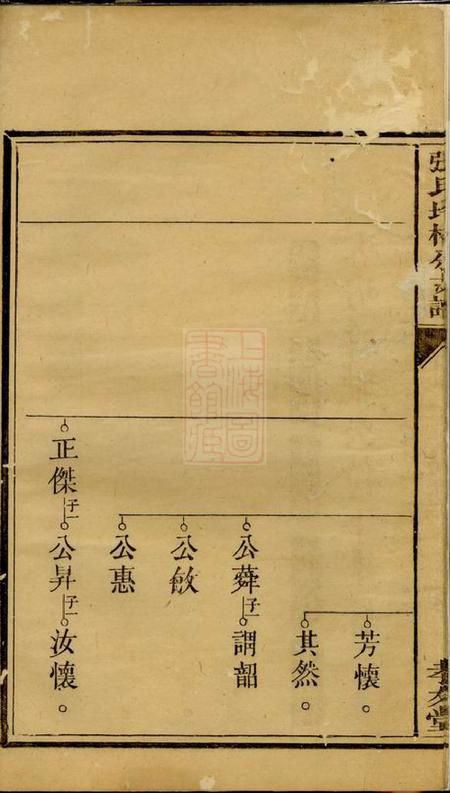 張氏
支譜
孝友堂
芳懷。
其然。
公蕣子一謂韶
公敏
公惠
正傑子一公昇子一汝懷。
上海圖書館藏